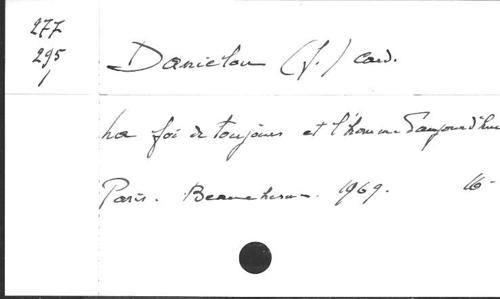 277
295
1
Daniélou (J.) card.
La foi de toujours et l'homme d'aujourd'hui
Paris. Beauchesne. 1969. 16-